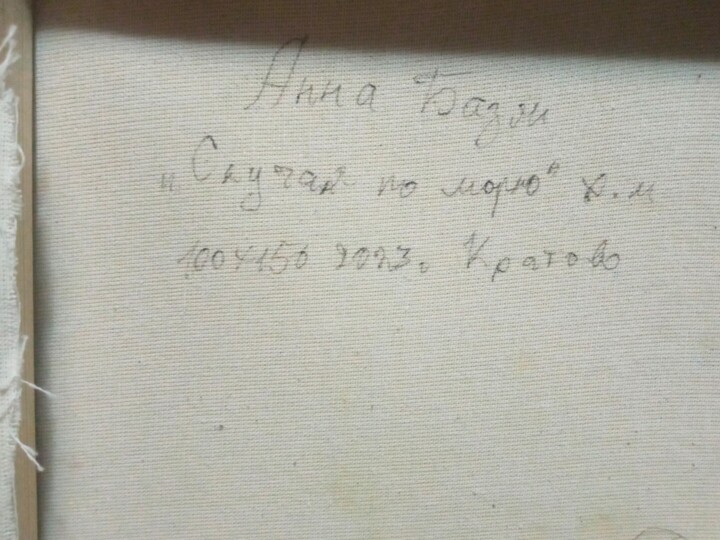 Анна Базян
„Скучая по морю" х.м
100х150 2023г. Кратово